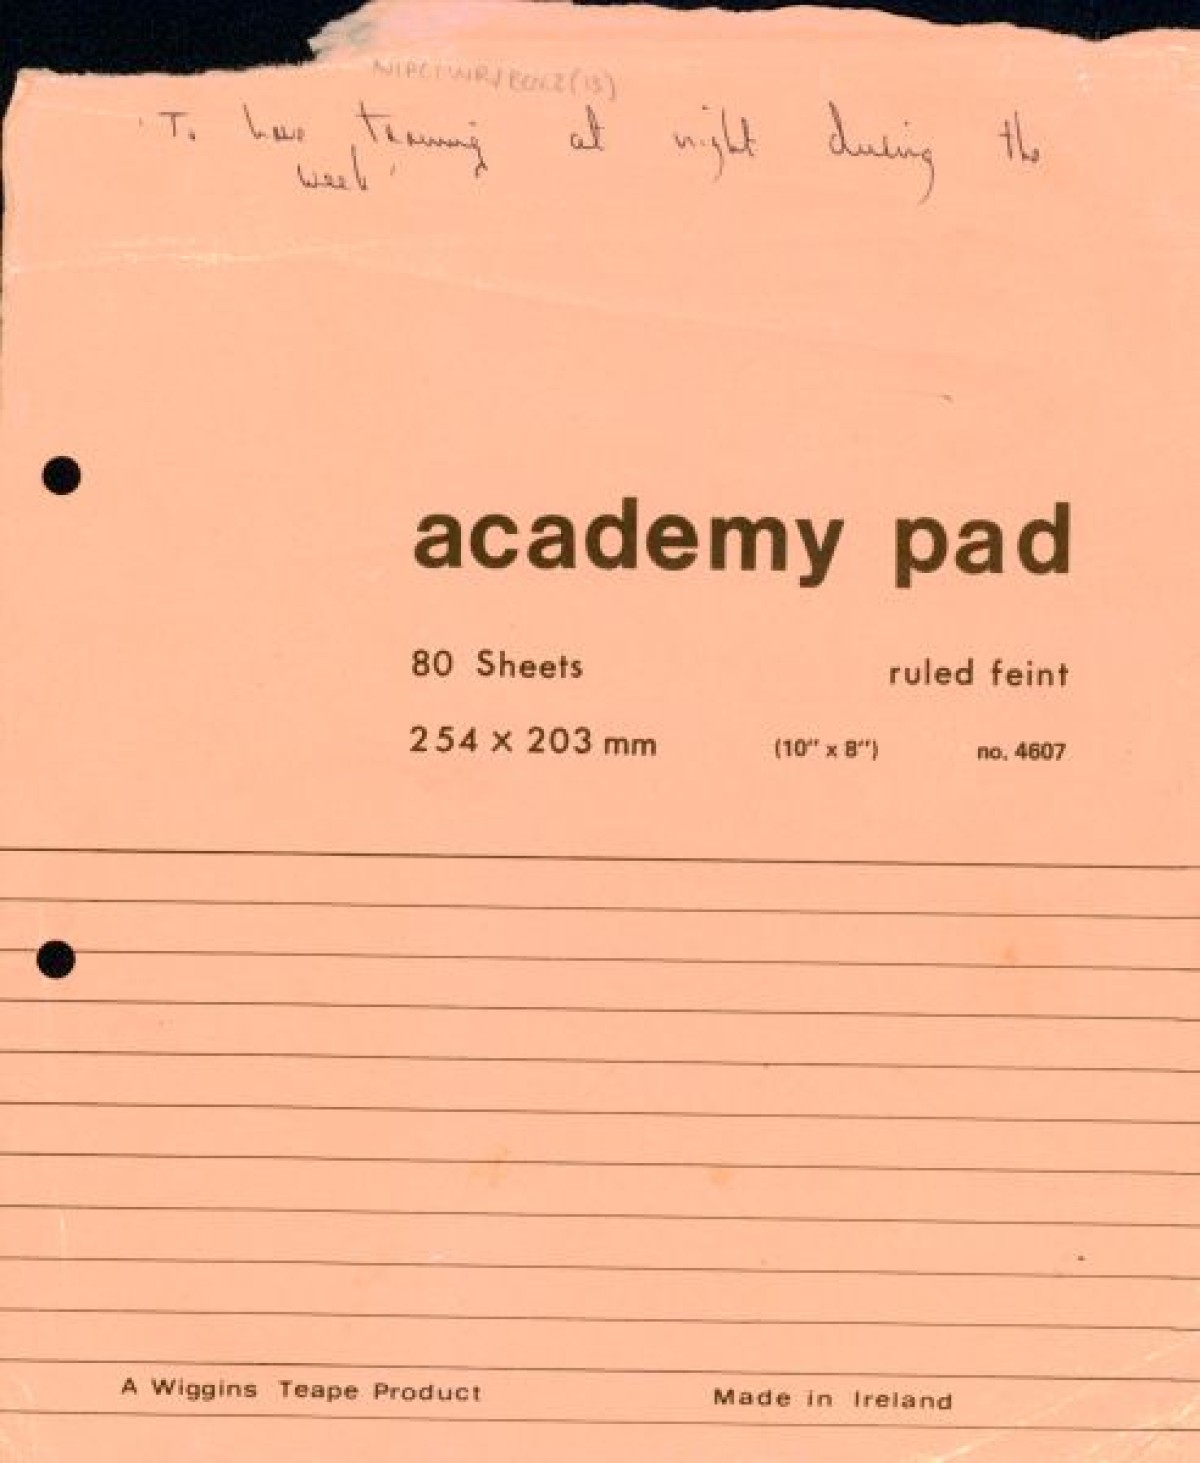 'To have training at night during the
week'
academy pad
80 Sheets ruled feint
254 x 203 mm (10" x 8") no. 4607
A Wiggins Teape Product Made in Ireland